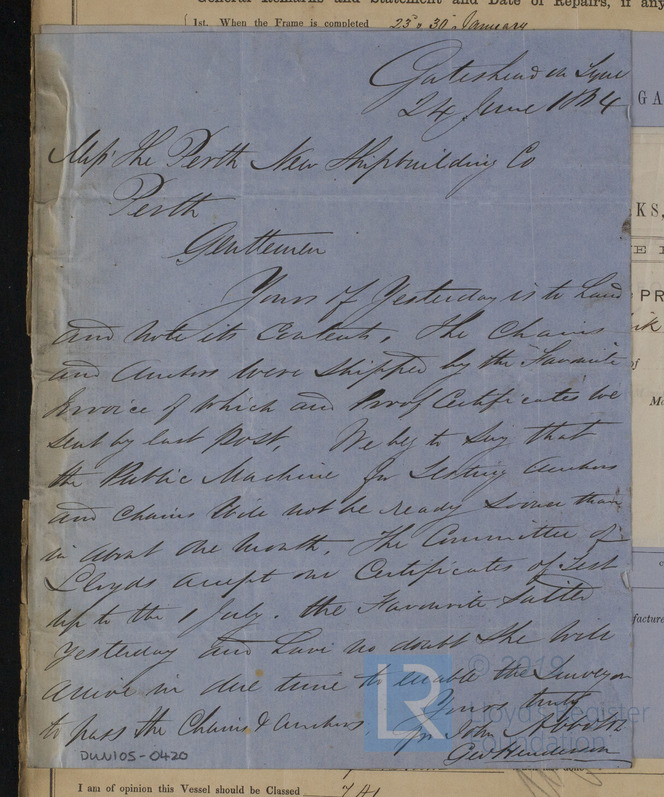 General Remarks and Statement and Date of Repairs, if any
1st. When the Frame is completed 23 & 30 January
Gateshead on Tyne
24 June 1864
Mess The Perth New Shipbuilding Co
Perth
Gentlemen
Yours of Yesterday is to hand
and note its Contents. The Chains
and Anchors were shipped by the Favourite
Invoice of which and Proof Certificates we
sent by last Post. We beg to say that
the Public Machine for Testing Anchors
and Chains Will not be ready sooner than
in about one Month. The Committee of
Lloyds accept our Certificates of Test
up to the 1 July. the Favourite Sailed
Yesterday and have no doubt she will
arrive in due time to enable the Surveyor
to pass the Chains & Anchors.
Yours truly
for John Abbot
Geo Henderson
DUN105-0420
LR
© 2019
Lloyd's Register
Foundation
GA
KS,
PR
facture
I am of opinion this Vessel should be Classed 7 A1